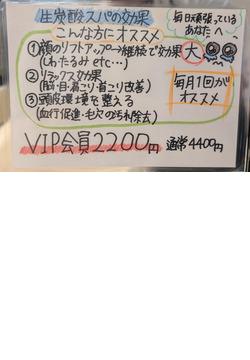 生炭酸スパの効果
毎日頑張っている
あなたへ
こんな方にオススメ
①顔のリフトアップ→継続で効果大
(しわたるみ etc…)
②リラックス効果
(脳・目・肩こり・首こり改善)
③頭皮環境を整える
(血行促進・毛穴の汚れ除去)
毎月1回が
オススメ
VIP会員2200円 通常4400円